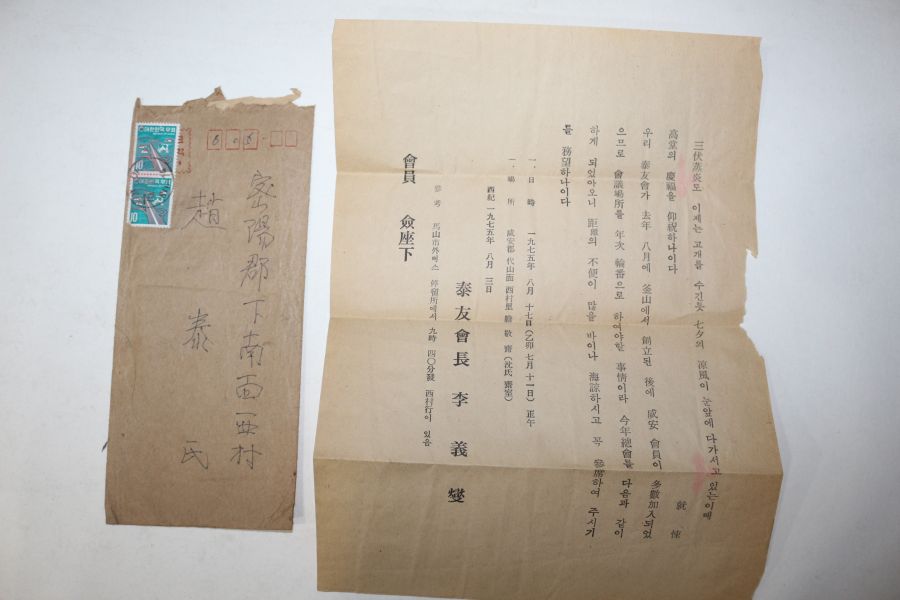 三伏蒸炎도 이제는 고개를 수긴듯 七夕의 凉風이 눈앞에 다가서고 있는이때
高堂의 慶福을 仰祝하나이다
就悚
우리 泰友會가 去年 八月에 釜山에서 創立된 後에 咸安 會員이 多數加入되었
으므로 會議場所를 年次 輪番으로 하여야할 事情이라 今年總會를 다음과 같이
하게 되었아오니 距離의 不便이 많을 바이나 海諒하시고 꼭 參席하여 주시기
를 務望하나이다
一、日 時 一九七五年 八月 十七日(乙卯 七月 十一日) 正午
一、場 所 咸安郡 代山面 西村里 瞻敬齋(沈氏齋室)
西紀 一九七五年 八月 三日
泰友會長 李義燮
參考 馬山市外뻐스 停留所에서 九時 四〇分發 西村行이 있음
會員 僉座下
대한민국우표
10
대한민국우표
10
密陽郡下南面西村
趙 泰 氏